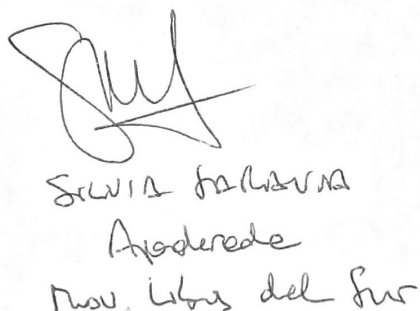 SILVIA SARAVIA
Apoderada
Mov. Libres del Sur